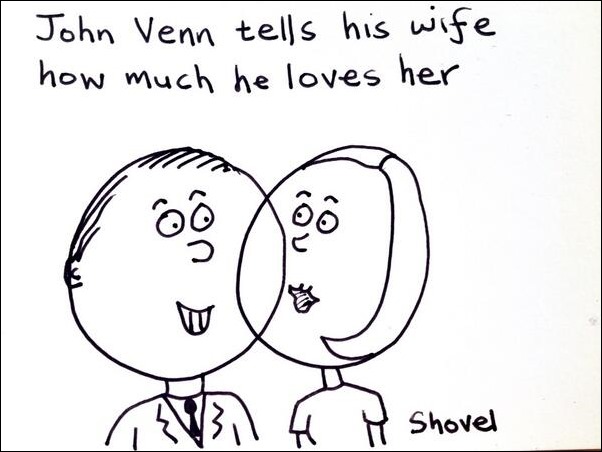 John Venn tells his wife
how much he loves her
Shovel